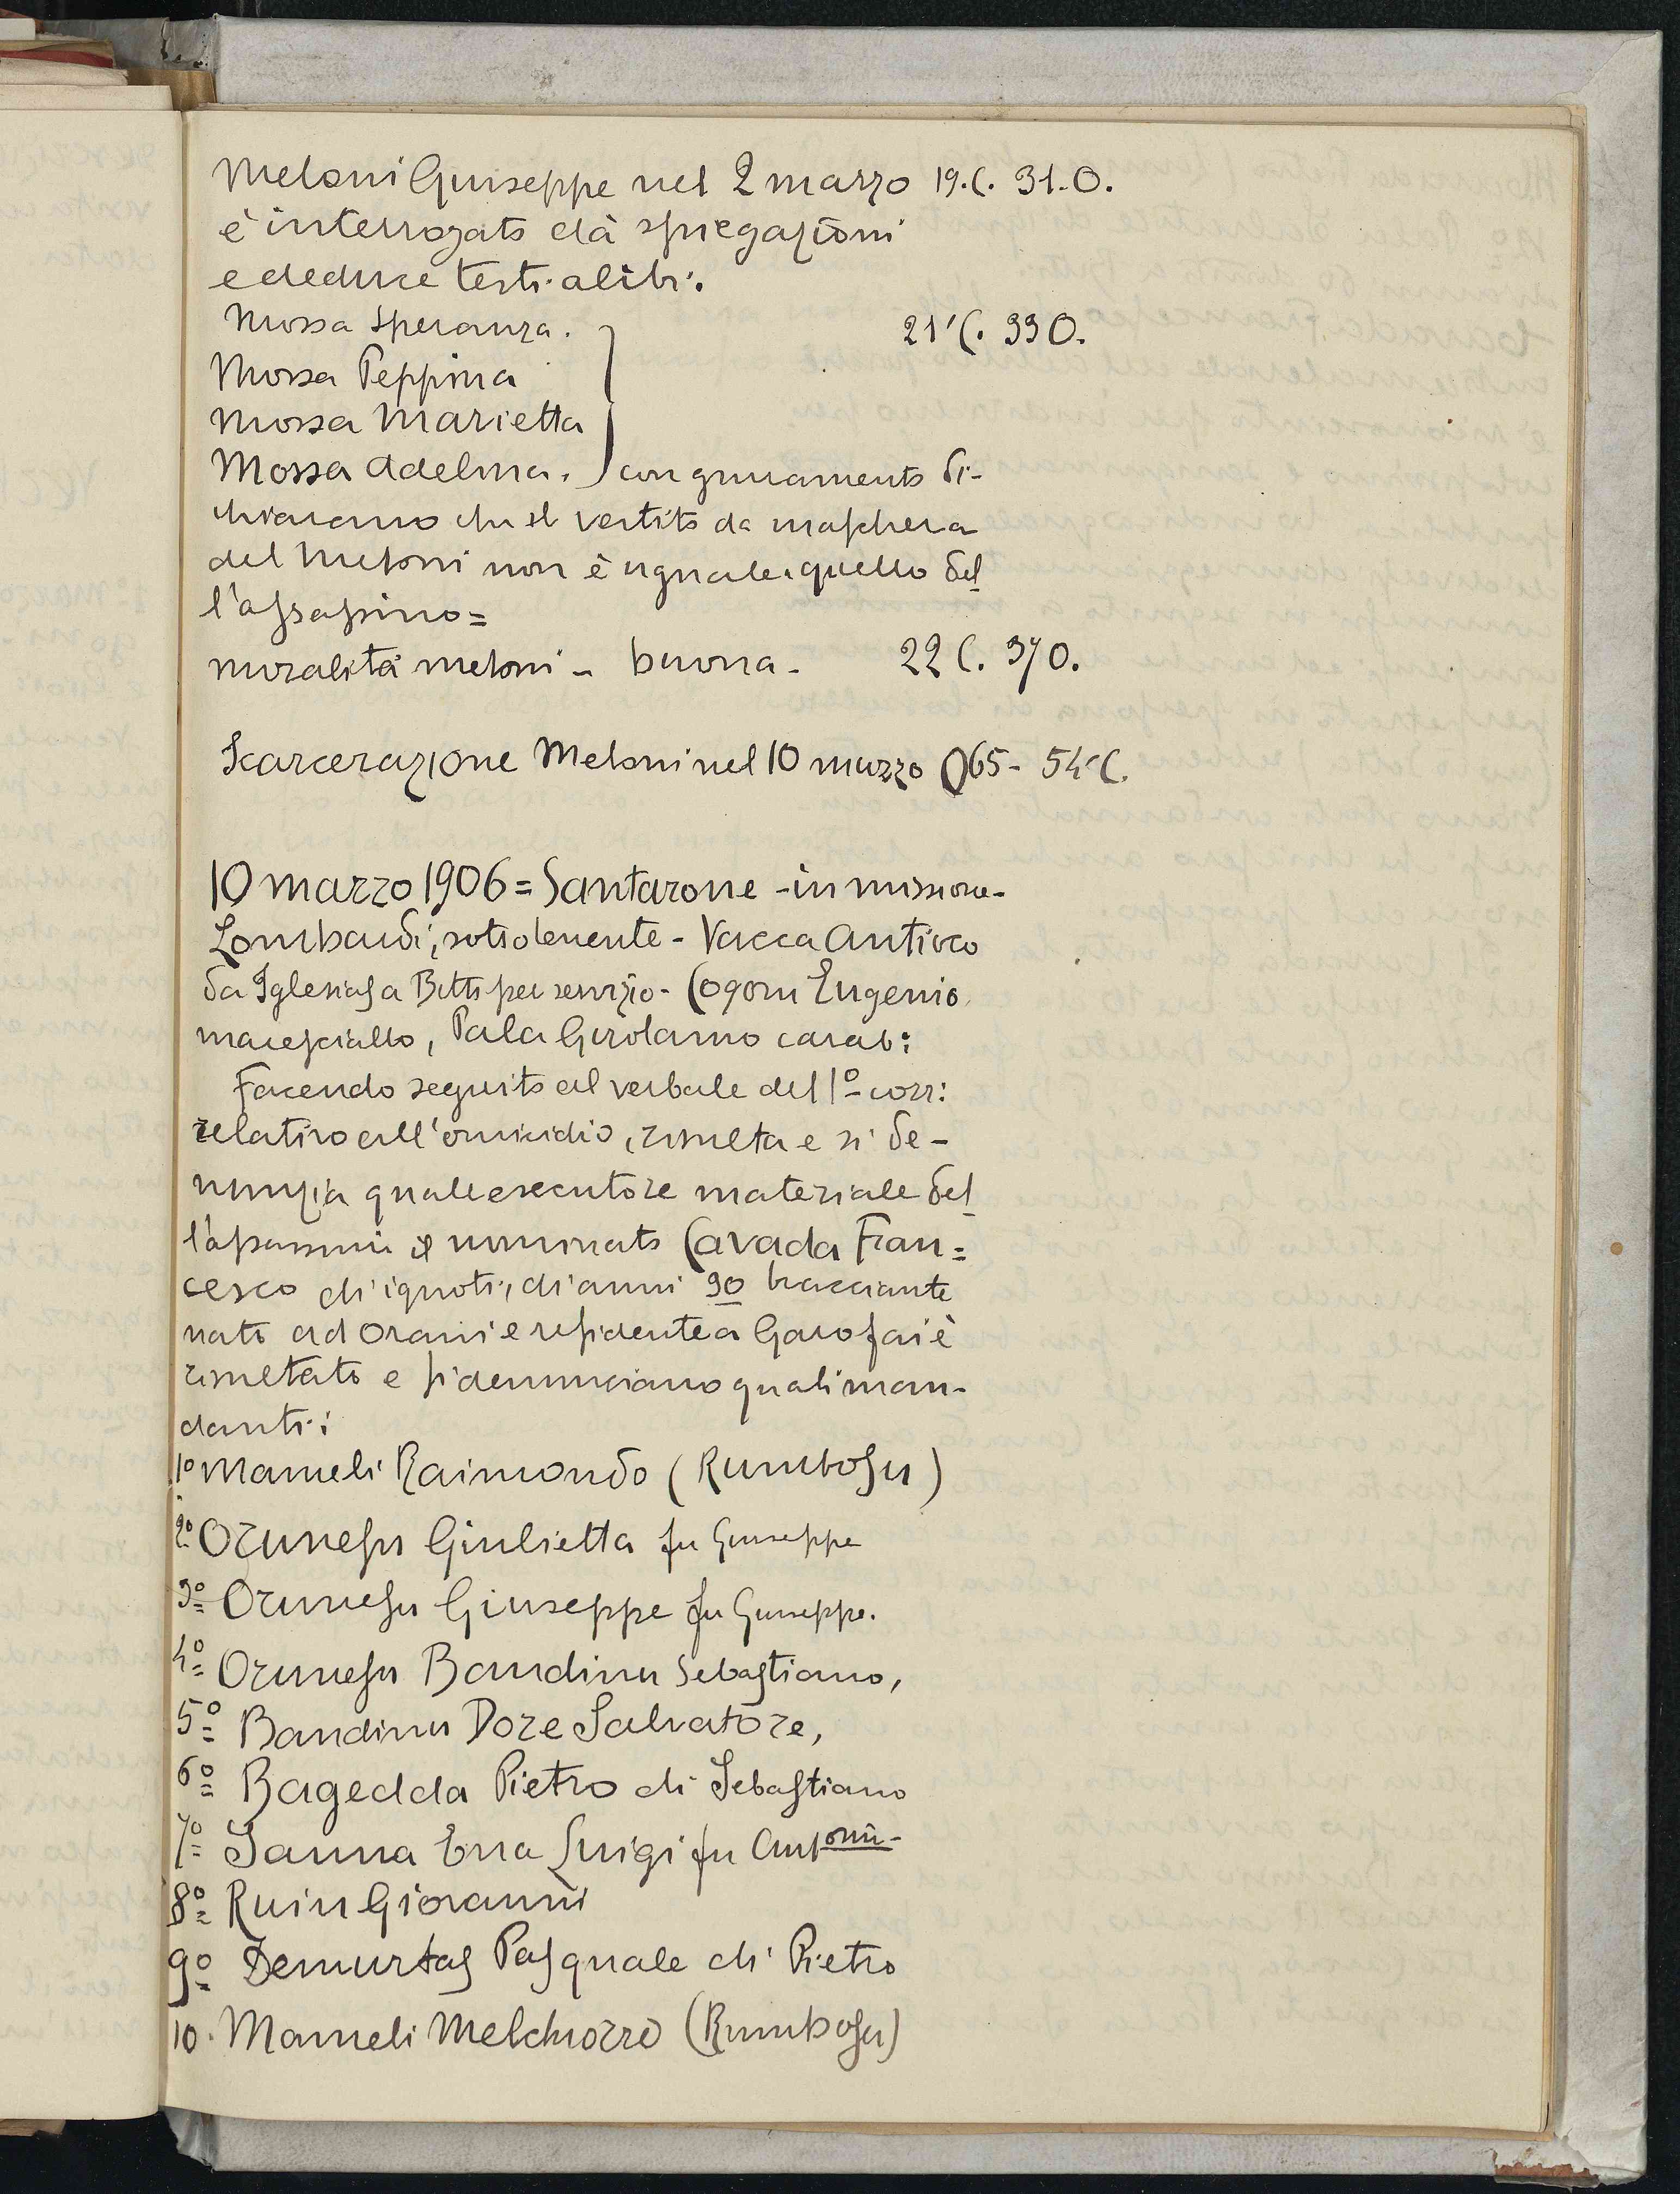 Meloni Giuseppe nel 2 marzo 19.C. 31.O.
è interrogato dà spiegazioni
e deduce testi alibi.
Mossa Speranza. 21 C. 33 O.
Mossa Peppina
Mossa Marietta
Mossa Adelina. con giuramento di-
chiarano che il vestito da maschera
del Meloni non è uguale a quello del
l'assassino =
moralità Meloni - buona - 22 C. 37 O.
Scarcerazione Meloni nel 10 marzo O 65 - 54 C.
10 marzo 1906 = Santarone - in missione -
Lombardi, sottotenente - Vacca Antioco
da Iglesias a Bitti per servizio - Cogoni Eugenio
maresciallo, Pala Girolamo carab:
Facendo seguito al verbale del 1º corr:
relativo all'omicidio, risulta e si de-
nunzia quale esecutore materiale del
l'assassinio il nominato Cavada Fran=
cesco di ignoti, di anni 30 bracciante
nato ad Orani e residente a Garofai è
risultato e si denunciano quali man-
danti:
1º Mameli Raimondo (Rumbosu)
2º Orunesu Giulietta fu Giuseppe
3º Orunesu Giuseppe fu Giuseppe.
4º Orunesu Bandinu Sebastiano,
5º Bandinu Dore Salvatore,
6º Bagedda Pietro di Sebastiano
7º Sanna Ena Luigi fu Antonio -
8º Ruiu Giovanni
9º Demurtas Pasquale di Pietro
10. Mameli Melchiorre (Rumbosu)